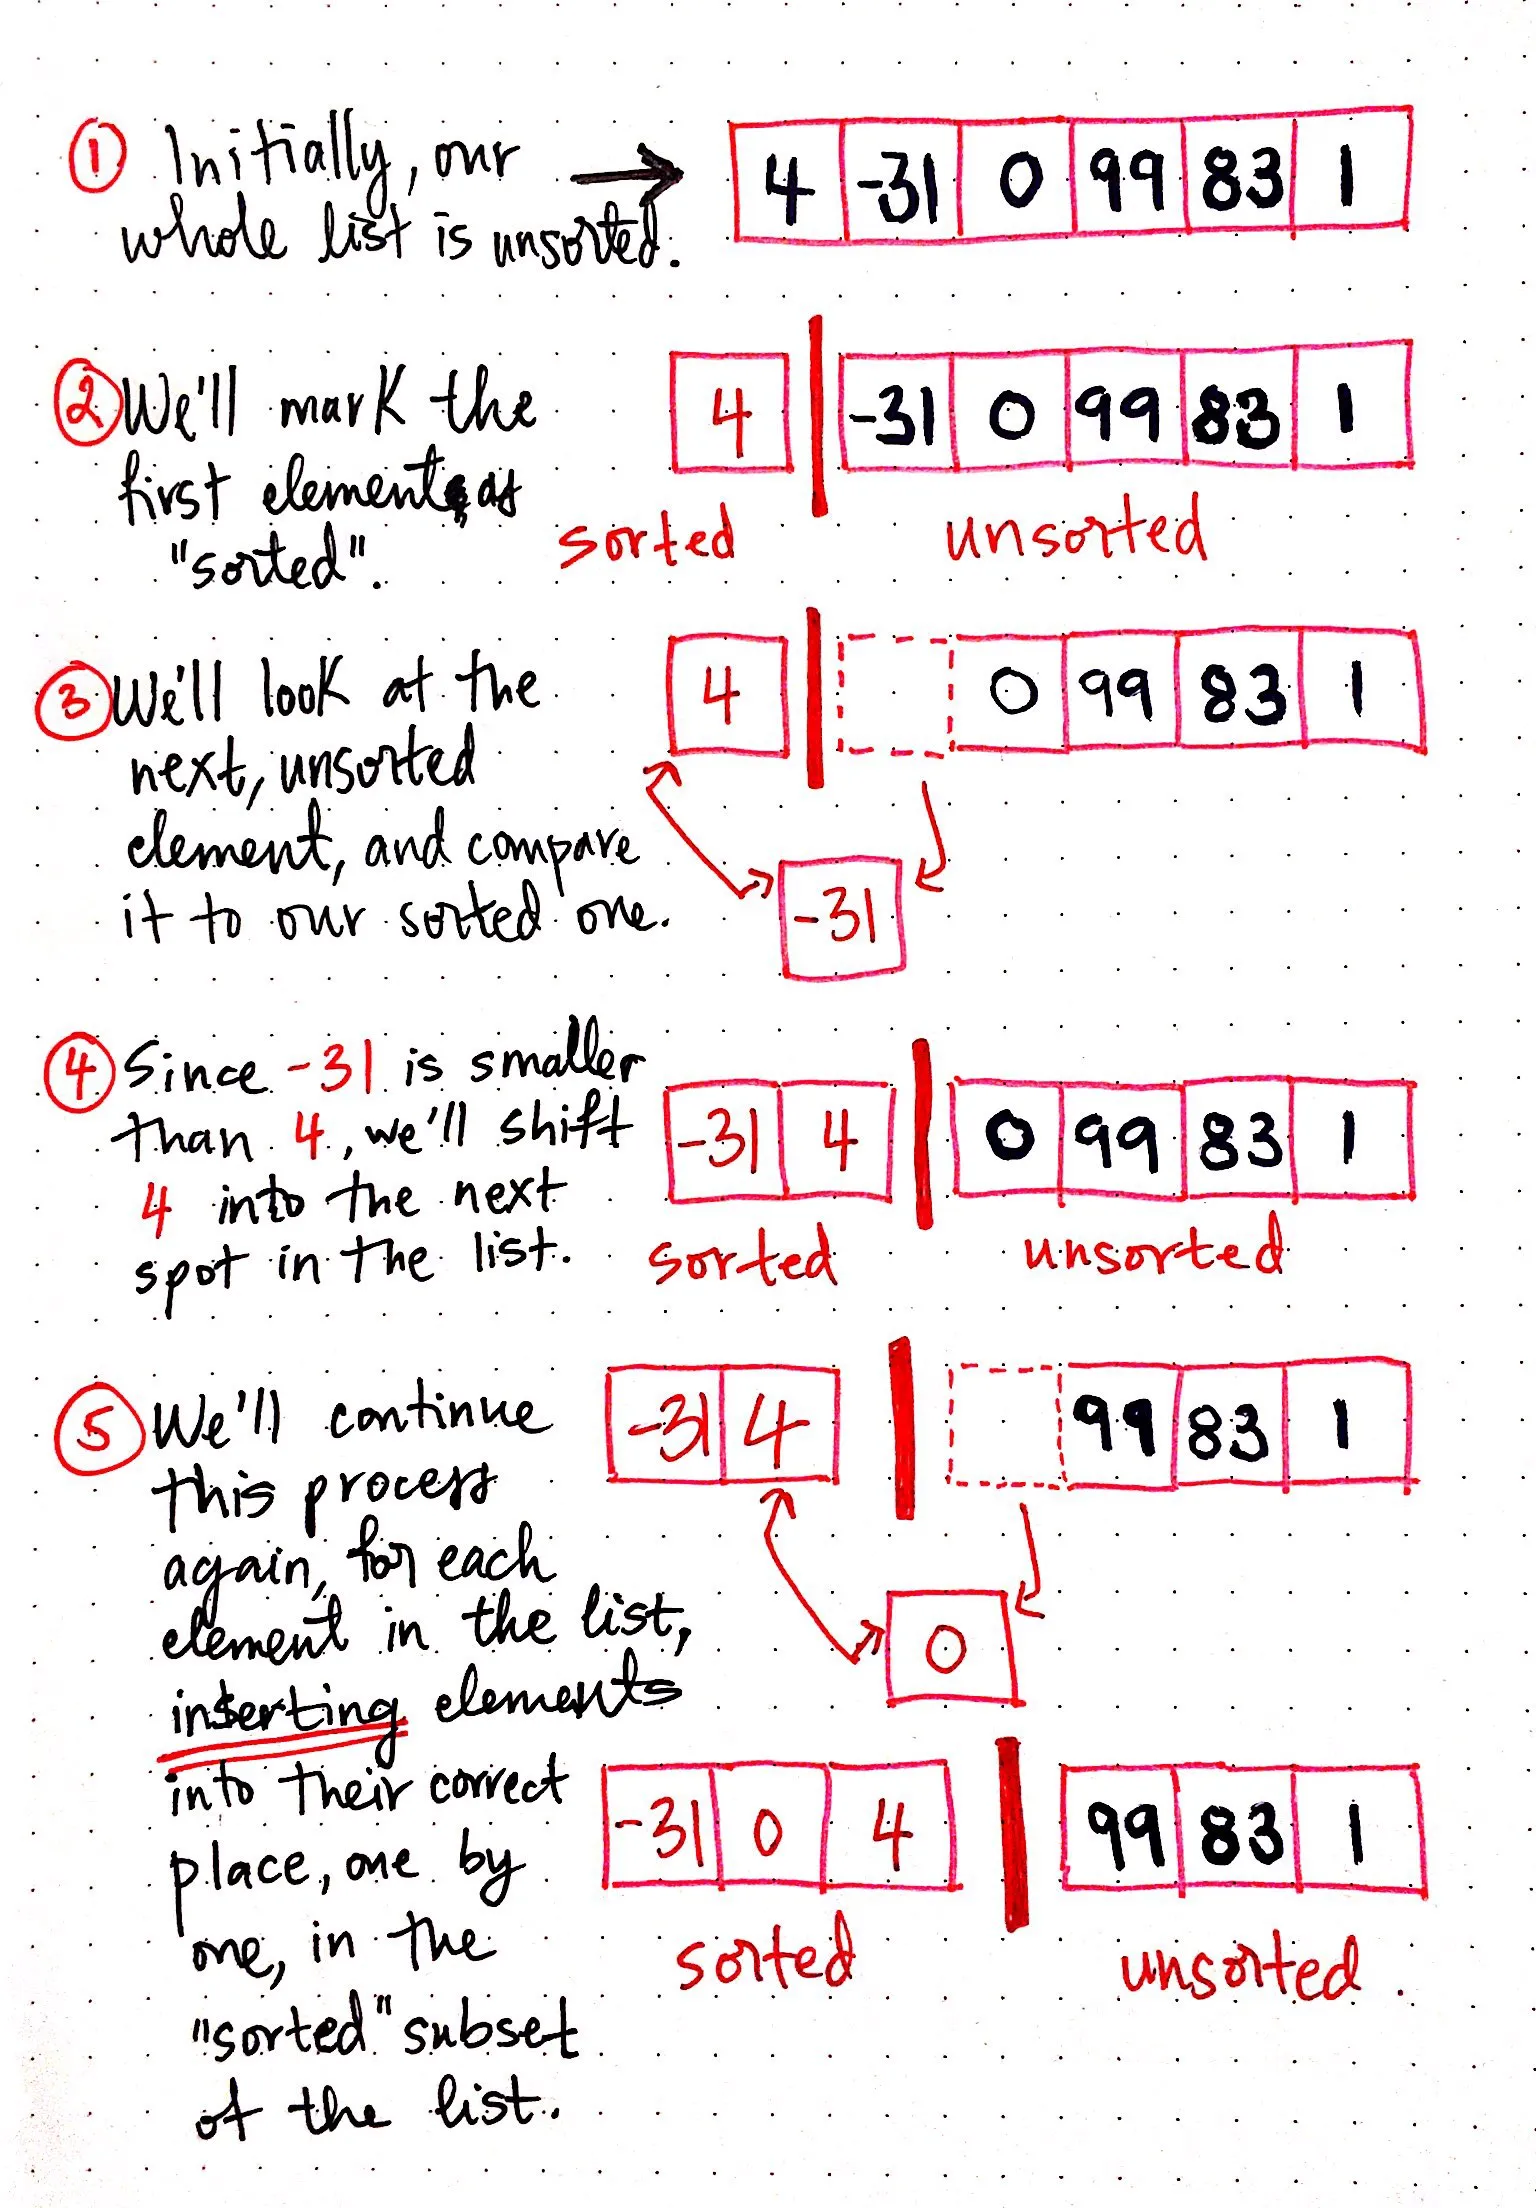 1 Initially, our → 4 -31 0 99 83 1
whole list is unsorted.
2 We'll mark the 4 -31 0 99 83 1
first element as
sorted unsorted
"sorted".
3 We'll look at the 4 0 99 83 1
next, unsorted
element, and compare
it to our sorted one. -31
4 Since -31 is smaller
than 4, we'll shift -31 4 0 99 83 1
4 into the next
spot in the list. sorted unsorted
5 We'll continue -31 4 99 83 1
this process
again, for each
element in the list, 0
inserting elements
into their correct
place, one by -31 0 4 99 83 1
one, in the
sorted unsorted
"sorted" subset
of the list.